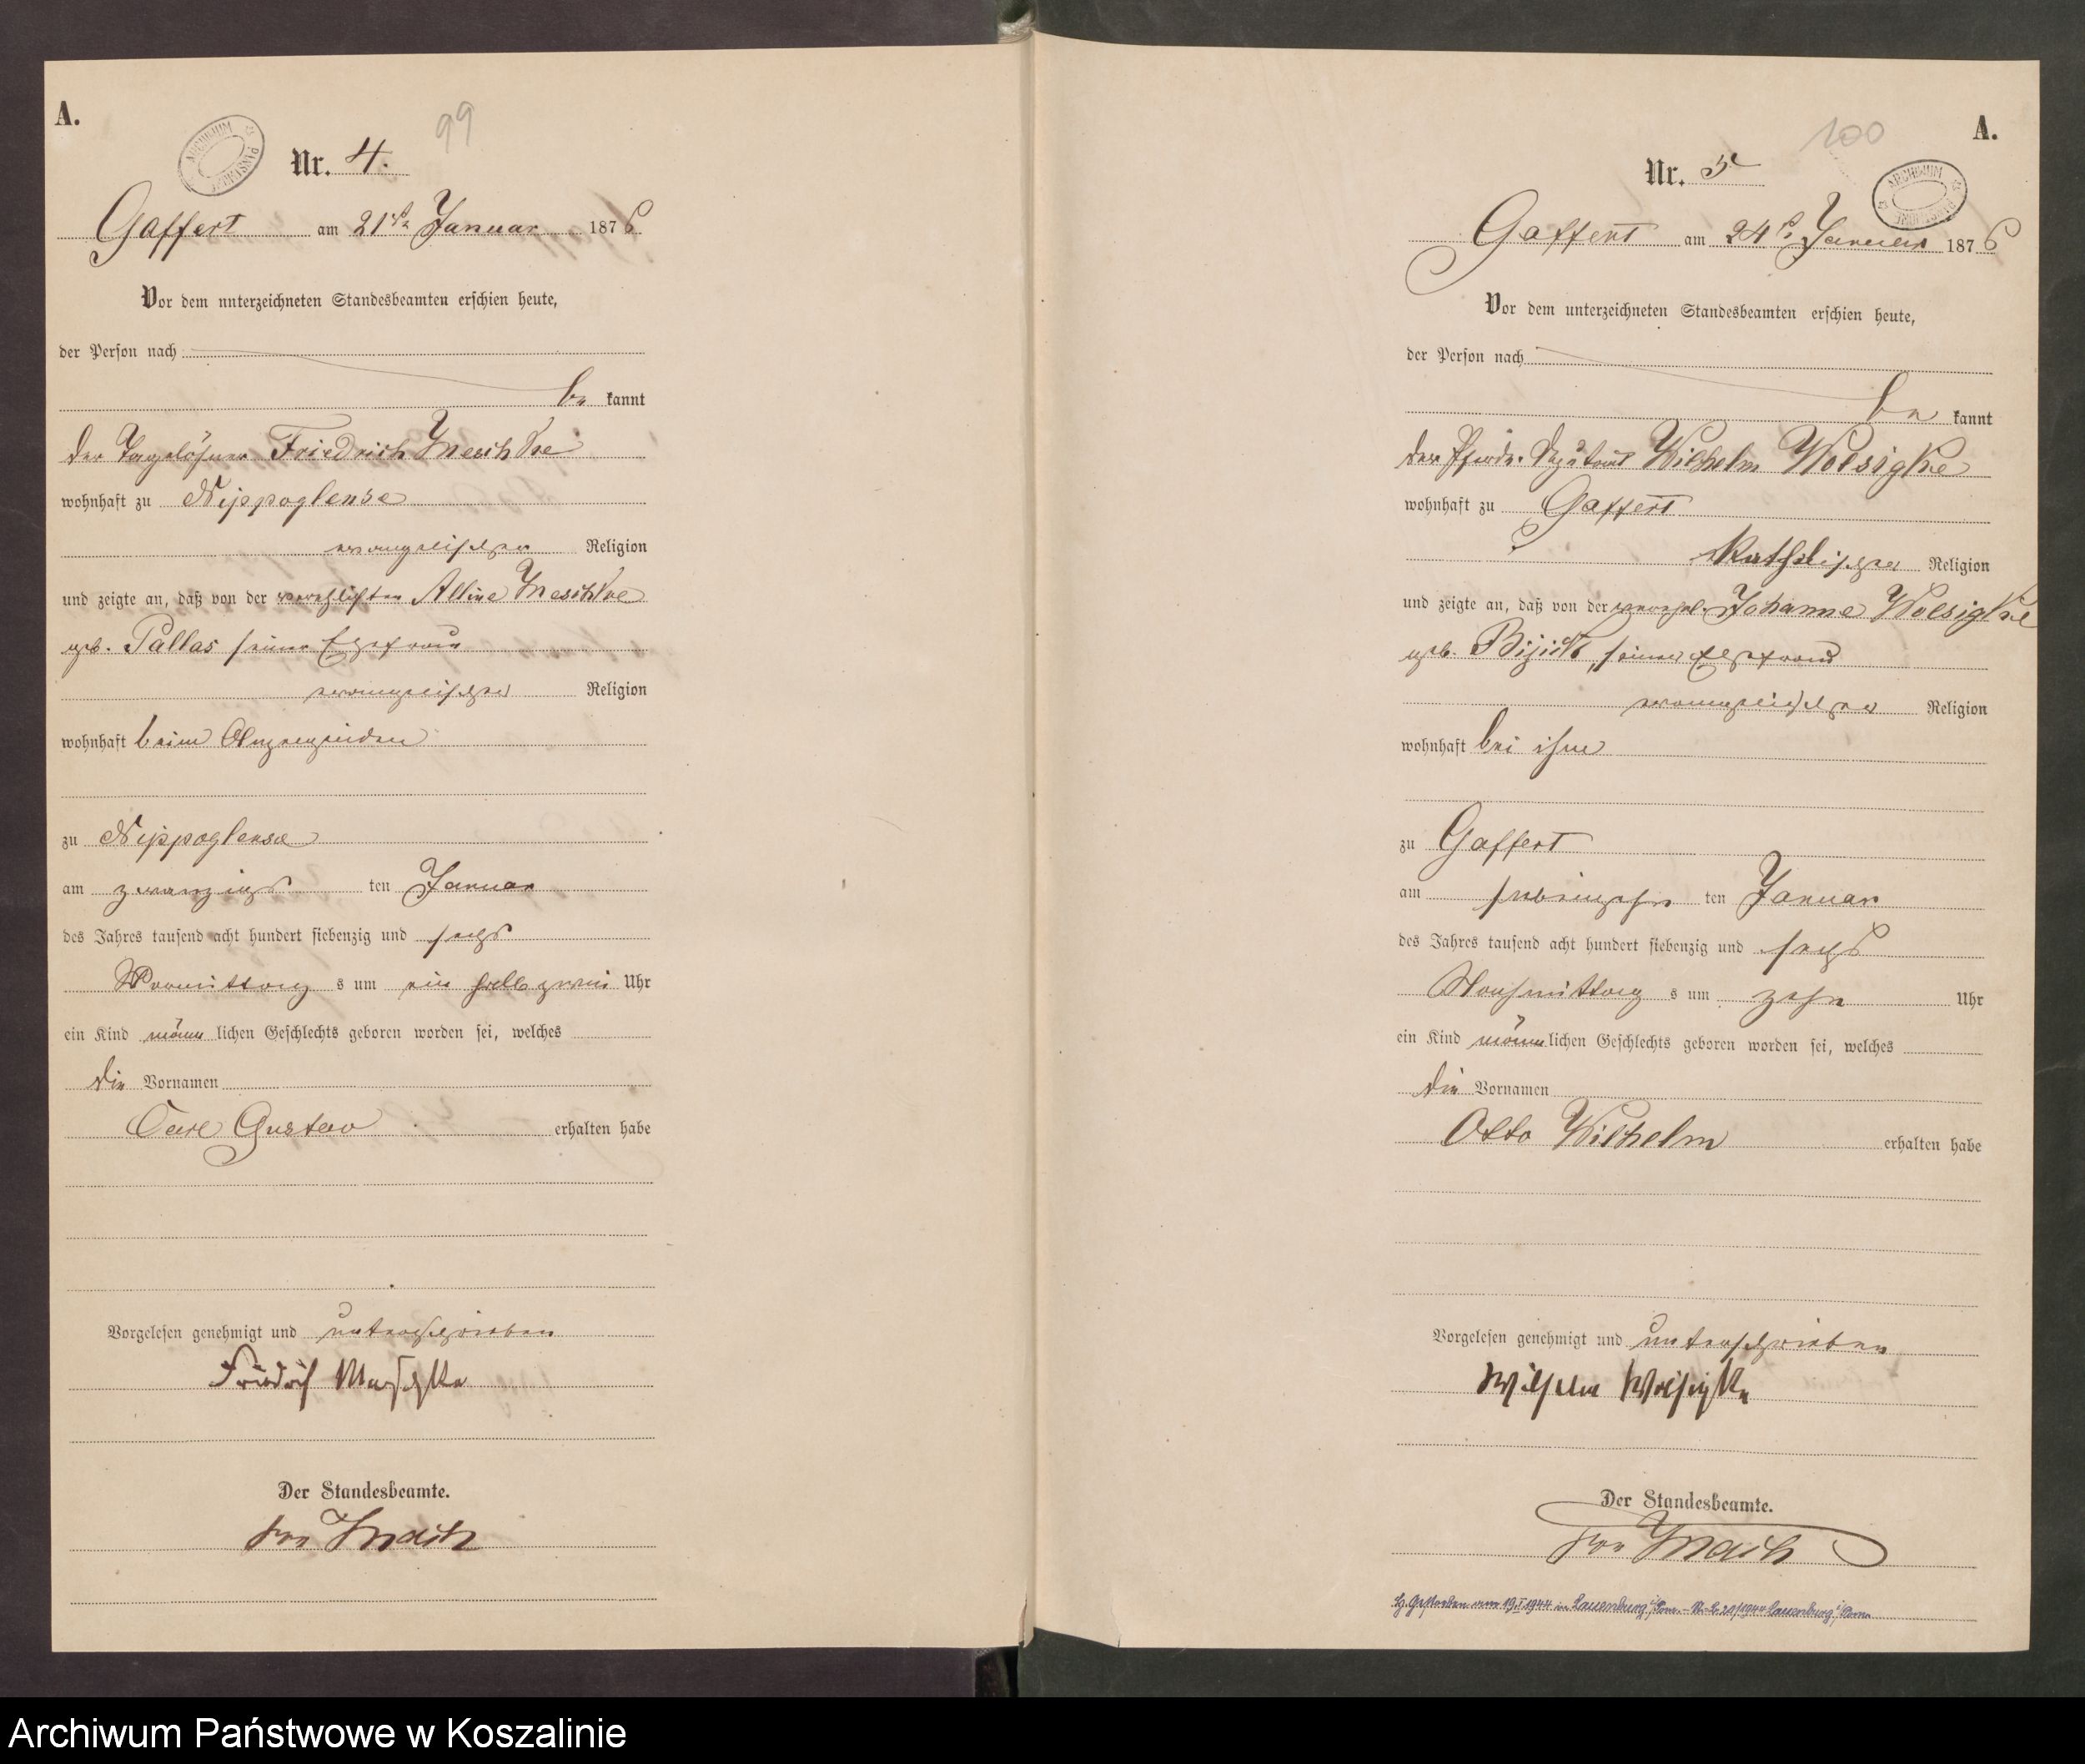 A.
99
ARCHIWUM PAŃSTWOWE
Nr. 4.
Gaffert am 21ten Januar 1876.
Vor dem unterzeichneten Standesbeamten erschien heute,
der Person nach
be kannt
der Tagelöhner Friedrich Meschke
wohnhaft zu Nippoglense
evangelischer Religion
und zeigte an, daß von der verehelichten Albine Meschke
geb. Pallas seiner Ehefrau
evangelischer Religion
wohnhaft beim Anzeigenden
zu Nippoglense
am zwanzigs ten Januar
des Jahres tausend acht hundert siebenzig und sechs
Vormittag s um ein halb zwei Uhr
ein Kind männ lichen Geschlechts geboren worden sei, welches
die Vornamen
Carl Gustav erhalten habe
Vorgelesen genehmigt und unterschrieben
Friedrich Meschke
Der Standesbeamte.
von Mach
A.
100
ARCHIWUM PAŃSTWOWE
Nr. 5
Gaffert am 24t. Januar 1876
Vor dem unterzeichneten Standesbeamten erschien heute,
der Person nach
be kannt
der Pferde-Deputant Wilhelm Woesigke
wohnhaft zu Gaffert
katholischer Religion
und zeigte an, daß von der verehel. Johanne Woesigke
geb. seiner Ehefrau
evangelischer Religion
wohnhaft bei ihm
zu Gaffert
am siebenzehn ten Januar
des Jahres tausend acht hundert siebenzig und sechs
Nachmittag s um zehn Uhr
ein Kind männ lichen Geschlechts geboren worden sei, welches
die Vornamen
Otto Wilhelm erhalten habe
Vorgelesen genehmigt und unterschrieben
Wilhelm Woesigke
Der Standesbeamte.
von Mach
Gestorben am 19.I.1944 in Lauenburg i/Pom. - Nr. 20/1944 Lauenburg i/Pom.
Archiwum Państwowe w Koszalinie